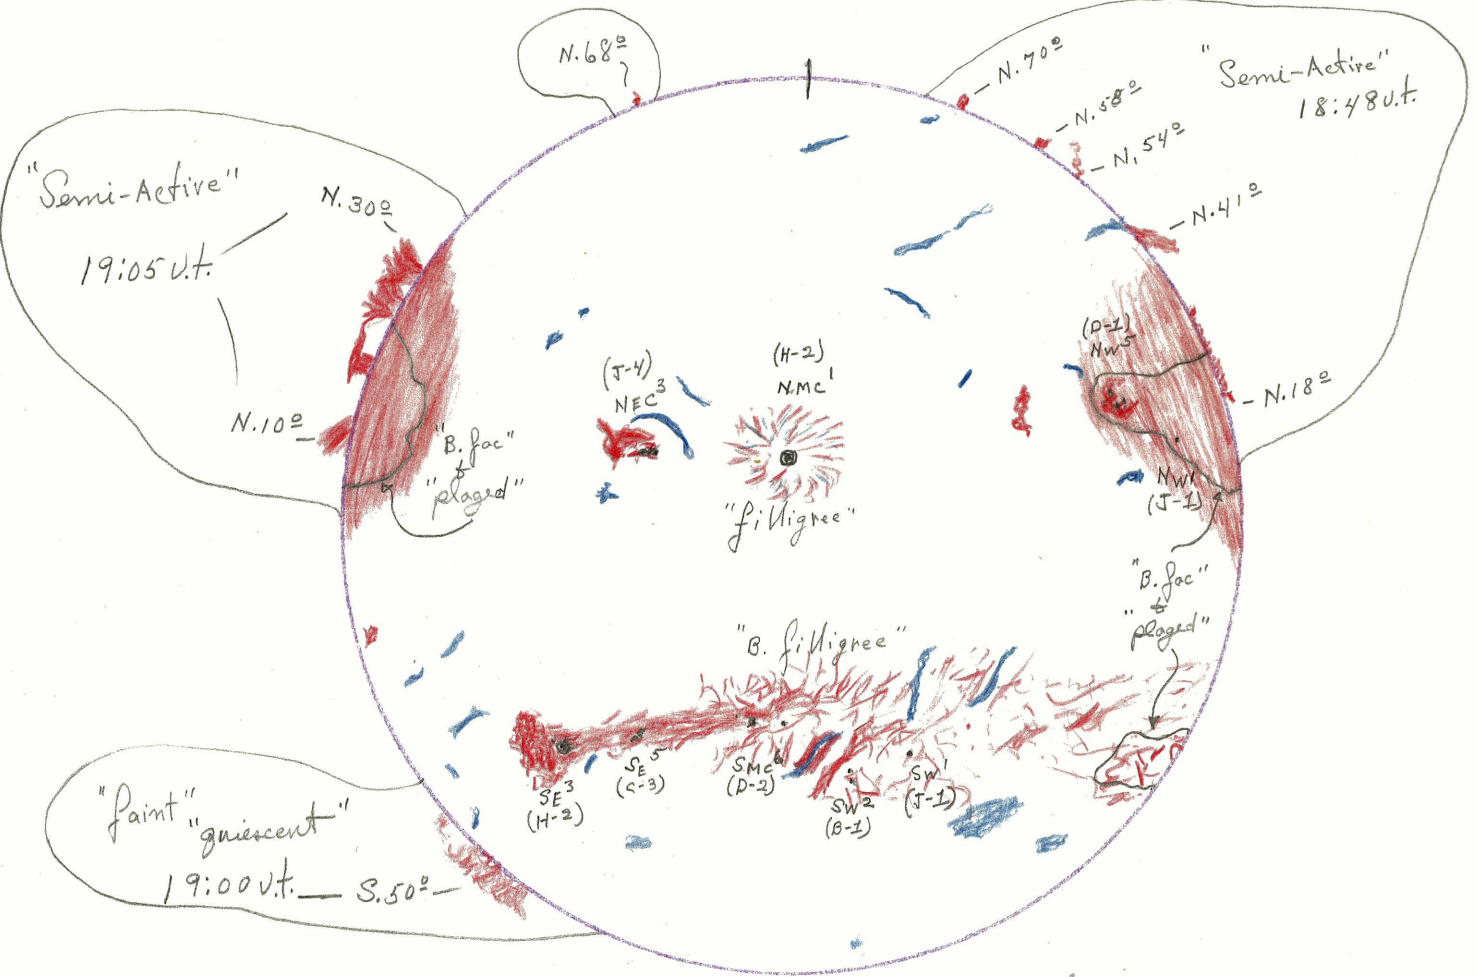 N.68º
N.70º
"Semi-Active"
18:48 U.t.
N.58º
N.54º
N.41º
"Semi-Active"
19:05 U.t.
N.30º
N.10º
"B. fac"
&
"plaged"
(J-4)
NEC³
(H-2)
NMC¹
"filligree"
(D-1)
NW⁵
N.18º
NW¹
(J-1)
"B. fac"
&
"plaged"
"B. filligree"
SE³
(H-2)
SE⁵
(C-3)
SMC⁶
(D-2)
SW²
(B-1)
SW¹
(J-1)
"faint" "quiescent"
19:00 U.t. — S.50º —